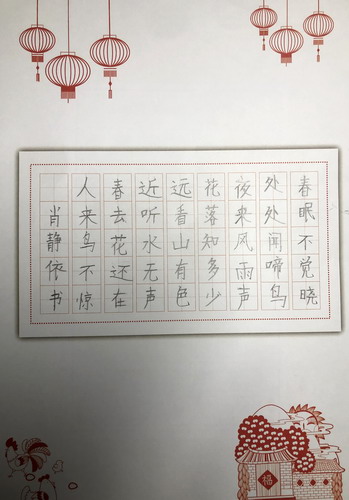 春眠不觉晓
处处闻啼鸟
夜来风雨声
花落知多少
远看山有色
近听水无声
春去花还在
人来鸟不惊
肖静依书
福